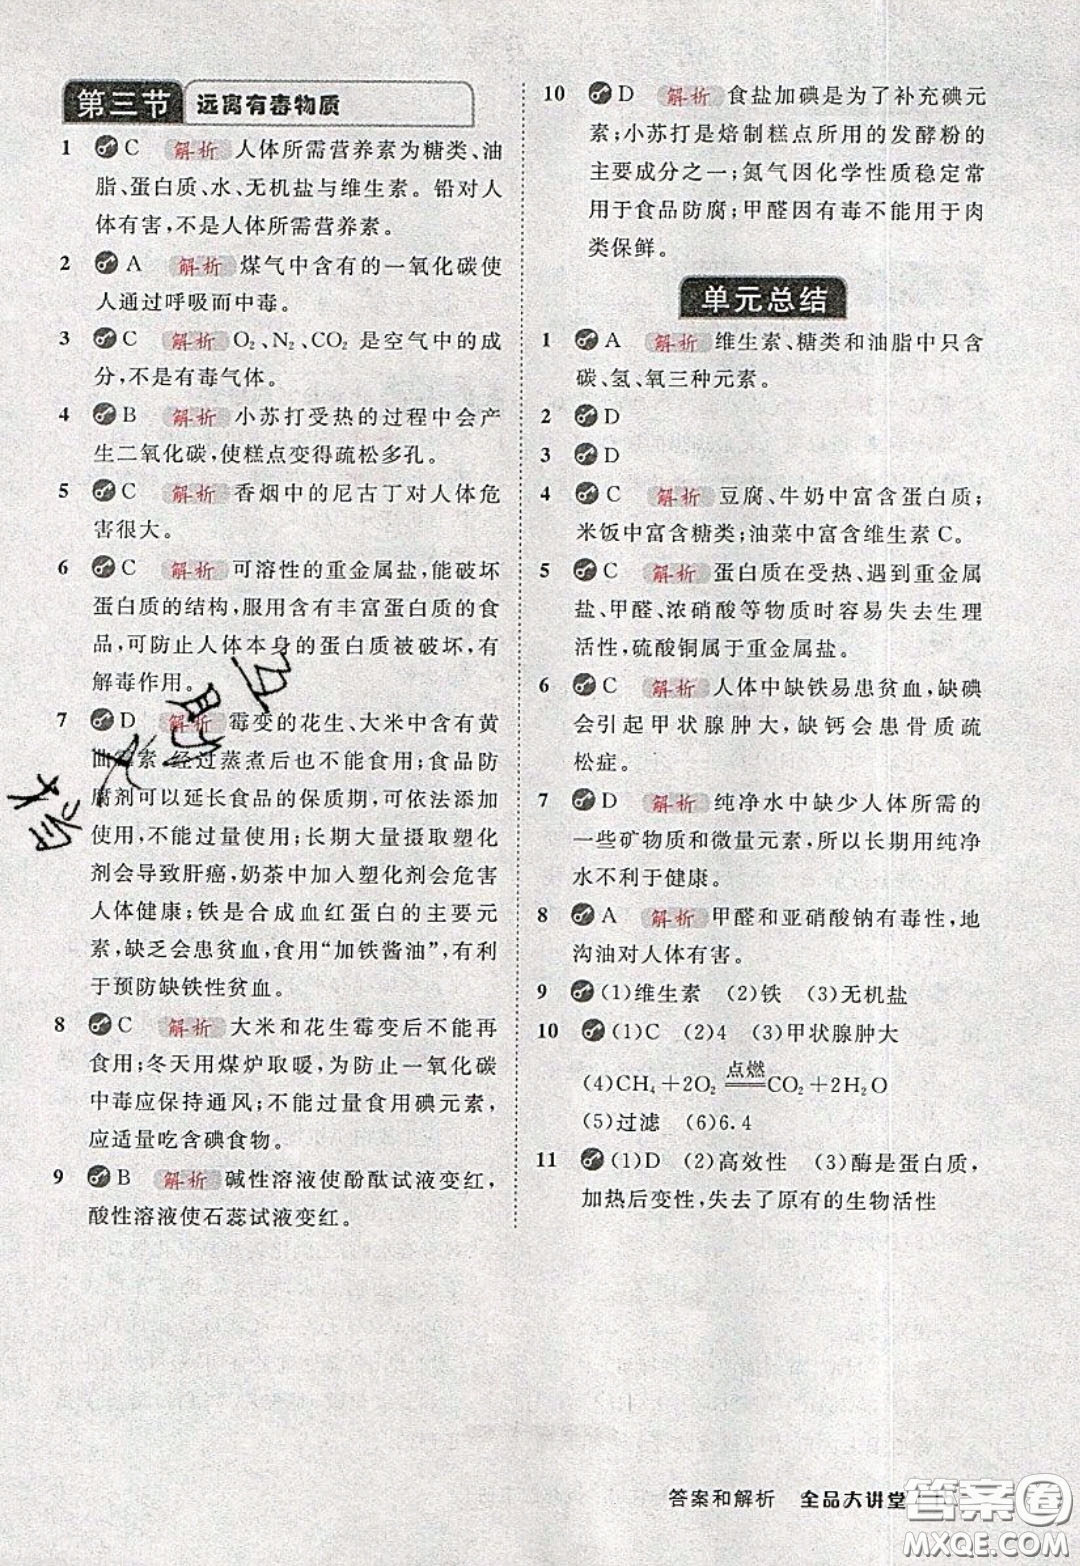 第三节 远离有毒物质
1 C 解析 人体所需营养素为糖类、油
脂、蛋白质、水、无机盐与维生素。铅对人
体有害,不是人体所需营养素。
2 A 解析 煤气中含有的一氧化碳使
人通过呼吸而中毒。
3 C 解析 O₂、N₂、CO₂ 是空气中的成
分,不是有毒气体。
4 B 解析 小苏打受热的过程中会产
生二氧化碳,使糕点变得疏松多孔。
5 C 解析 香烟中的尼古丁对人体危
害很大。
6 C 解析 可溶性的重金属盐,能破坏
蛋白质的结构,服用含有丰富蛋白质的食
品,可防止人体本身的蛋白质被破坏,有
解毒作用。
7 D 解析 霉变的花生、大米中含有黄
曲霉素,经过蒸煮后也不能食用;食品防
腐剂可以延长食品的保质期,可依法添加
使用,不能过量使用;长期大量摄取塑化
剂会导致肝癌,奶茶中加入塑化剂会危害
人体健康;铁是合成血红蛋白的主要元
素,缺乏会患贫血,食用“加铁酱油”,有利
于预防缺铁性贫血。
8 C 解析 大米和花生霉变后不能再
食用;冬天用煤炉取暖,为防止一氧化碳
中毒应保持通风;不能过量食用碘元素,
应适量吃含碘食物。
9 B 解析 碱性溶液使酚酞试液变红,
酸性溶液使石蕊试液变红。
10 D 解析 食盐加碘是为了补充碘元
素;小苏打是焙制糕点所用的发酵粉的
主要成分之一;氮气因化学性质稳定常
用于食品防腐;甲醛因有毒不能用于肉
类保鲜。
单元总结
1 A 解析 维生素、糖类和油脂中只含
碳、氢、氧三种元素。
2 D
3 D
4 C 解析 豆腐、牛奶中富含蛋白质;
米饭中富含糖类;油菜中富含维生素 C。
5 C 解析 蛋白质在受热、遇到重金属
盐、甲醛、浓硝酸等物质时容易失去生理
活性,硫酸铜属于重金属盐。
6 C 解析 人体中缺铁易患贫血,缺碘
会引起甲状腺肿大,缺钙会患骨质疏
松症。
7 D 解析 纯净水中缺少人体所需的
一些矿物质和微量元素,所以长期用纯净
水不利于健康。
8 A 解析 甲醛和亚硝酸钠有毒性,地
沟油对人体有害。
9 (1)维生素 (2)铁 (3)无机盐
10 (1)C (2)4 (3)甲状腺肿大
点燃
(4)CH₄+2O₂══CO₂+2H₂O
(5)过滤 (6)6.4
11 (1)D (2)高效性 (3)酶是蛋白质,
加热后变性,失去了原有的生物活性
答案和解析 全品大讲堂
答案圈
MXQE.COM